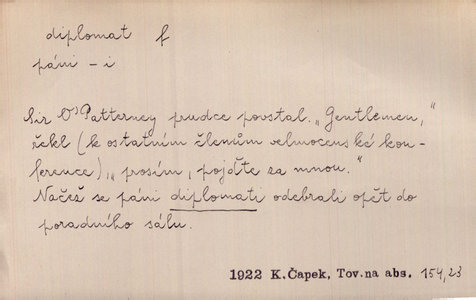 diplomat f
páni - i
Sir O'Patterney prudce povstal. „Gentlemen,"
řekl (k ostatním členům velmocenské kon-
ference), „prosím, pojďte za mnou."
Načež se páni diplomati odebrali opět do
poradního sálu.
1922 K.Čapek, Tov.na abs. 154,23